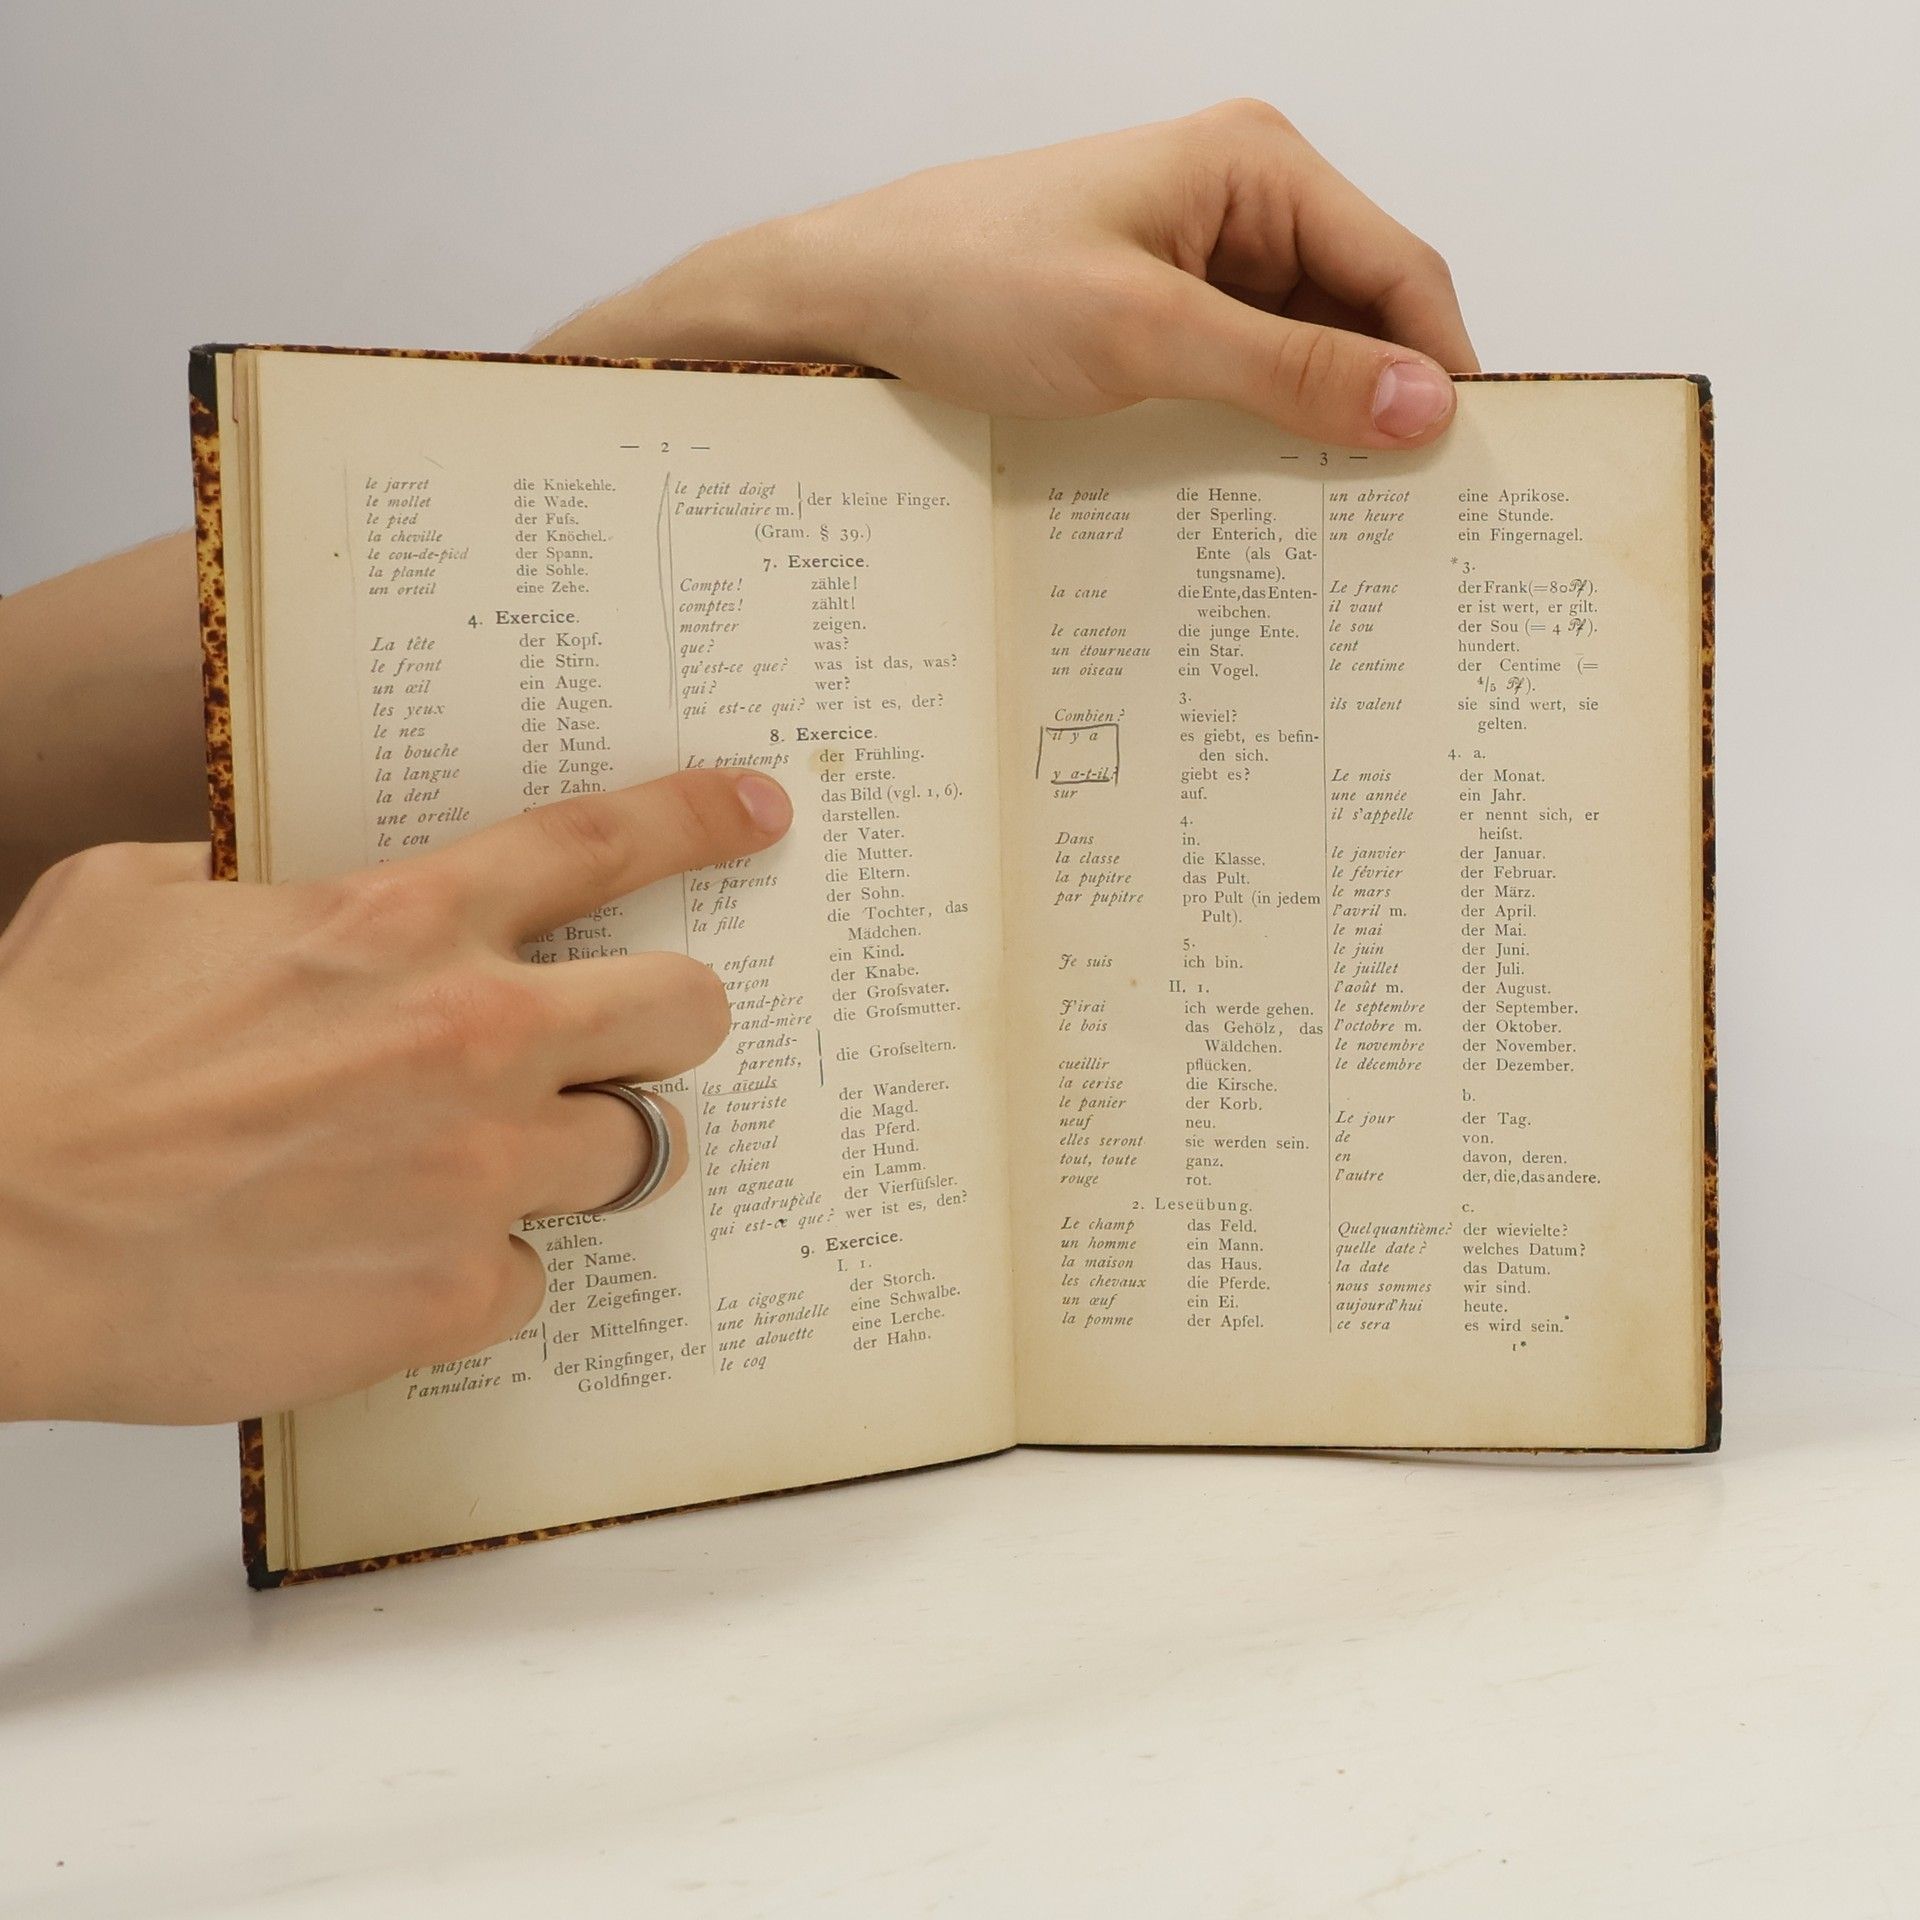 — 2 —
le jarret die Kniekehle.
le mollet die Wade.
le pied der Fuſs.
la cheville der Knöchel.
le cou-de-pied der Spann.
la plante die Sohle.
un orteil eine Zehe.
4. Exercice.
La tête der Kopf.
le front die Stirn.
un œil ein Auge.
les yeux die Augen.
le nez die Nase.
la bouche der Mund.
la langue die Zunge.
la dent der Zahn.
une oreille
le cou
die Brust.
der Rücken
sind.
Exercice.
zählen.
der Name.
der Daumen.
der Zeigefinger.
der Mittelfinger.
le majeur
l'annulaire m. der Ringfinger, der
Goldfinger.
le petit doigt
l'auriculaire m. der kleine Finger.
(Gram. § 39.)
7. Exercice.
Compte! zähle!
comptez! zählt!
montrer zeigen.
que? was?
qu'est-ce que? was ist das, was?
qui? wer?
qui est-ce qui? wer ist es, der?
8. Exercice.
Le printemps der Frühling.
der erste.
das Bild (vgl. 1, 6).
darstellen.
der Vater.
mère die Mutter.
les parents die Eltern.
le fils der Sohn.
la fille die Tochter, das
Mädchen.
enfant ein Kind.
der Knabe.
der Groſsvater.
die Groſsmutter.
grands-
parents, die Groſseltern.
les aïeuls
le touriste der Wanderer.
la bonne die Magd.
le cheval das Pferd.
le chien der Hund.
un agneau ein Lamm.
le quadrupède der Vierfüſsler.
qui est-ce que? wer ist es, den?
9. Exercice.
I. 1.
La cigogne der Storch.
une hirondelle eine Schwalbe.
une alouette eine Lerche.
le coq der Hahn.
— 3 —
la poule die Henne.
le moineau der Sperling.
le canard der Enterich, die
Ente (als Gat-
tungsname).
la cane die Ente, das Enten-
weibchen.
le caneton die junge Ente.
un étourneau ein Star.
un oiseau ein Vogel.
3.
Combien? wieviel?
il y a es giebt, es befin-
den sich.
y a-t-il? giebt es?
sur auf.
4.
Dans in.
la classe die Klasse.
la pupitre das Pult.
par pupitre pro Pult (in jedem
Pult).
5.
Je suis ich bin.
II. 1.
J'irai ich werde gehen.
le bois das Gehölz, das
Wäldchen.
cueillir pflücken.
la cerise die Kirsche.
le panier der Korb.
neuf neu.
elles seront sie werden sein.
tout, toute ganz.
rouge rot.
2. Leseübung.
Le champ das Feld.
un homme ein Mann.
la maison das Haus.
les chevaux die Pferde.
un œuf ein Ei.
la pomme der Apfel.
un abricot eine Aprikose.
une heure eine Stunde.
un ongle ein Fingernagel.
*3.
Le franc der Frank (= 80 Pf).
il vaut er ist wert, er gilt.
le sou der Sou (= 4 Pf).
cent hundert.
le centime der Centime (=
4/5 Pf).
ils valent sie sind wert, sie
gelten.
4. a.
Le mois der Monat.
une année ein Jahr.
il s'appelle er nennt sich, er
heiſst.
le janvier der Januar.
le février der Februar.
le mars der März.
l'avril m. der April.
le mai der Mai.
le juin der Juni.
le juillet der Juli.
l'août m. der August.
le septembre der September.
l'octobre m. der Oktober.
le novembre der November.
le décembre der Dezember.
b.
Le jour der Tag.
de von.
en davon, deren.
l'autre der, die, das andere.
c.
Quel quantième? der wievielte?
quelle date? welches Datum?
la date das Datum.
nous sommes wir sind.
aujourd'hui heute.
ce sera es wird sein.
1*